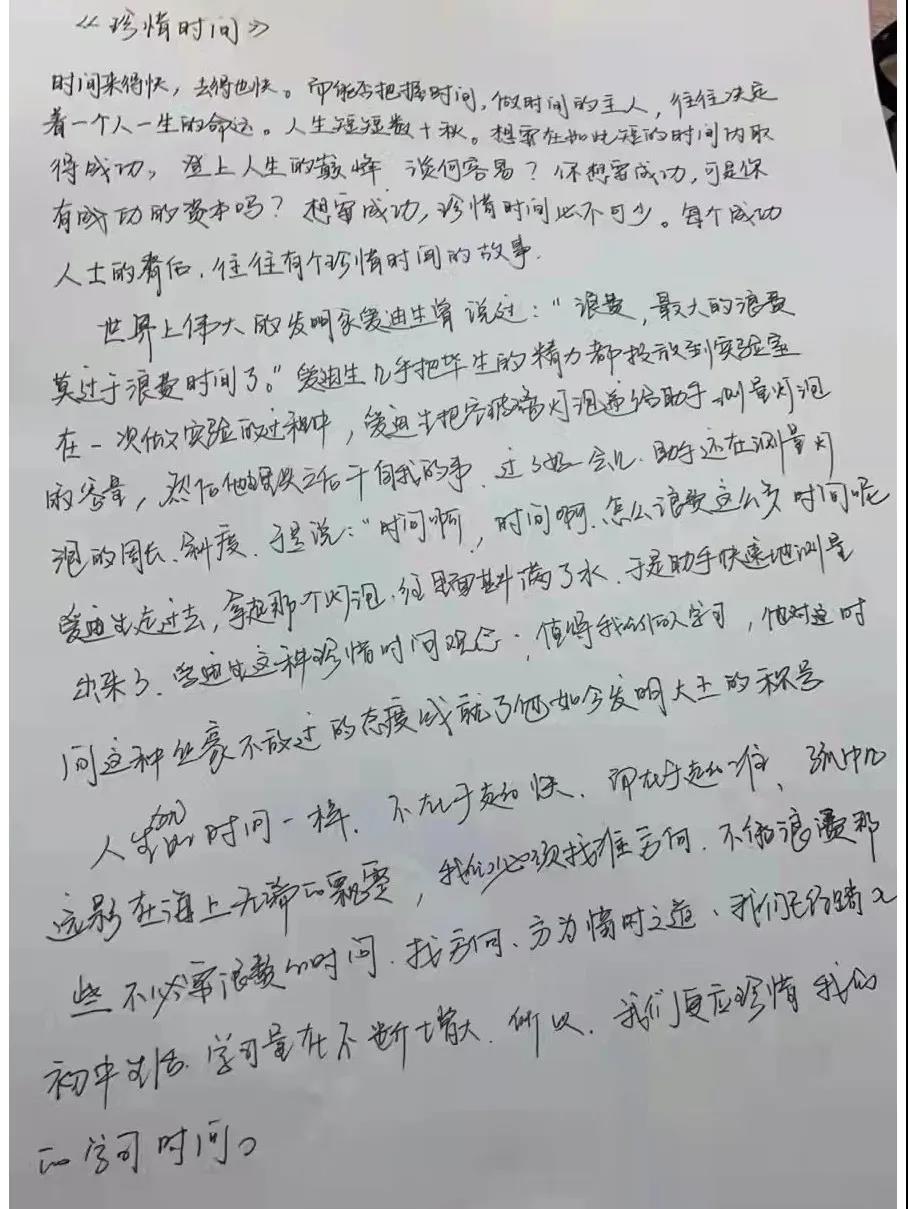 《珍惜时间》
时间来得快，去得也快。而能否把握时间，做时间的主人，往往决定
着一个人一生的命运。人生短短数十秋。想要在如此短的时间内取
得成功，登上人生的巅峰，谈何容易？你想要成功，可是你
有成功的资本吗？想要成功，珍惜时间必不可少。每个成功
人士的背后，往往有个珍惜时间的故事.
世界上伟大的发明家爱迪生曾说过："浪费，最大的浪费
莫过于浪费时间了。"爱迪生几乎把毕生的精力都投放到实验室
在一次做实验的过程中，爱迪生把玻璃灯泡递给助手测量灯泡
的容量，然后他继续工作干自我的事.过了好一会儿.助手还在测量灯
泡的周长、斜度.于是说："时间啊，时间啊.怎么浪费这么多时间呢
爱迪生走过去，拿起那个灯泡.往里面斟满了水.于是助手快速地测量
出来了.爱迪生这种珍惜时间观念，值得我们的人学习，他对这时
间这种丝毫不放过的态度成就了他如今发明大王的称号
人生如时间一样.不在于走的快.而在于走的准、
远影在海上无端的飘零，我们必须找准方向.不做浪费那
些不必要浪费的时间.找方向、方为惜时之道、我们已经踏入
初中生活.学习量在不断增大.所以.我们更应珍惜我们
的学习时间。